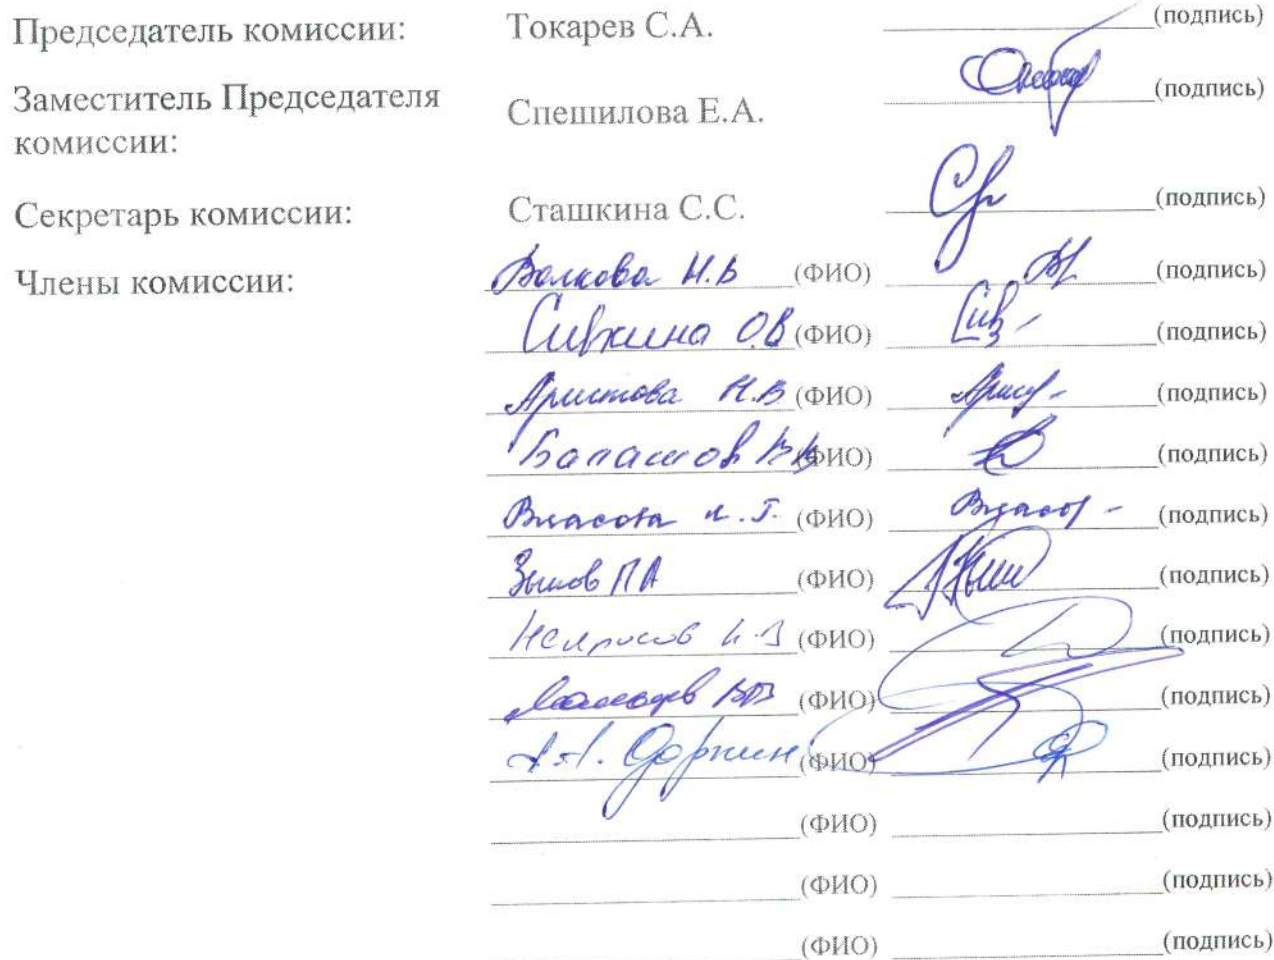 Председатель комиссии: Токарев С.А. (подпись)
Заместитель Председателя комиссии: Спешилова Е.А. (подпись)
Секретарь комиссии: Сташкина С.С. (подпись)
Члены комиссии: Волкова Н.В (ФИО) (подпись)
Сивкина О.В (ФИО) (подпись)
Аристова Н.В (ФИО) (подпись)
Балашов В.В (ФИО) (подпись)
Власова (ФИО) (подпись)
ПА (ФИО) (подпись)
Некрасов (ФИО) (подпись)
(ФИО) (подпись)
(ФИО) (подпись)
(ФИО) (подпись)
(ФИО) (подпись)
(ФИО) (подпись)